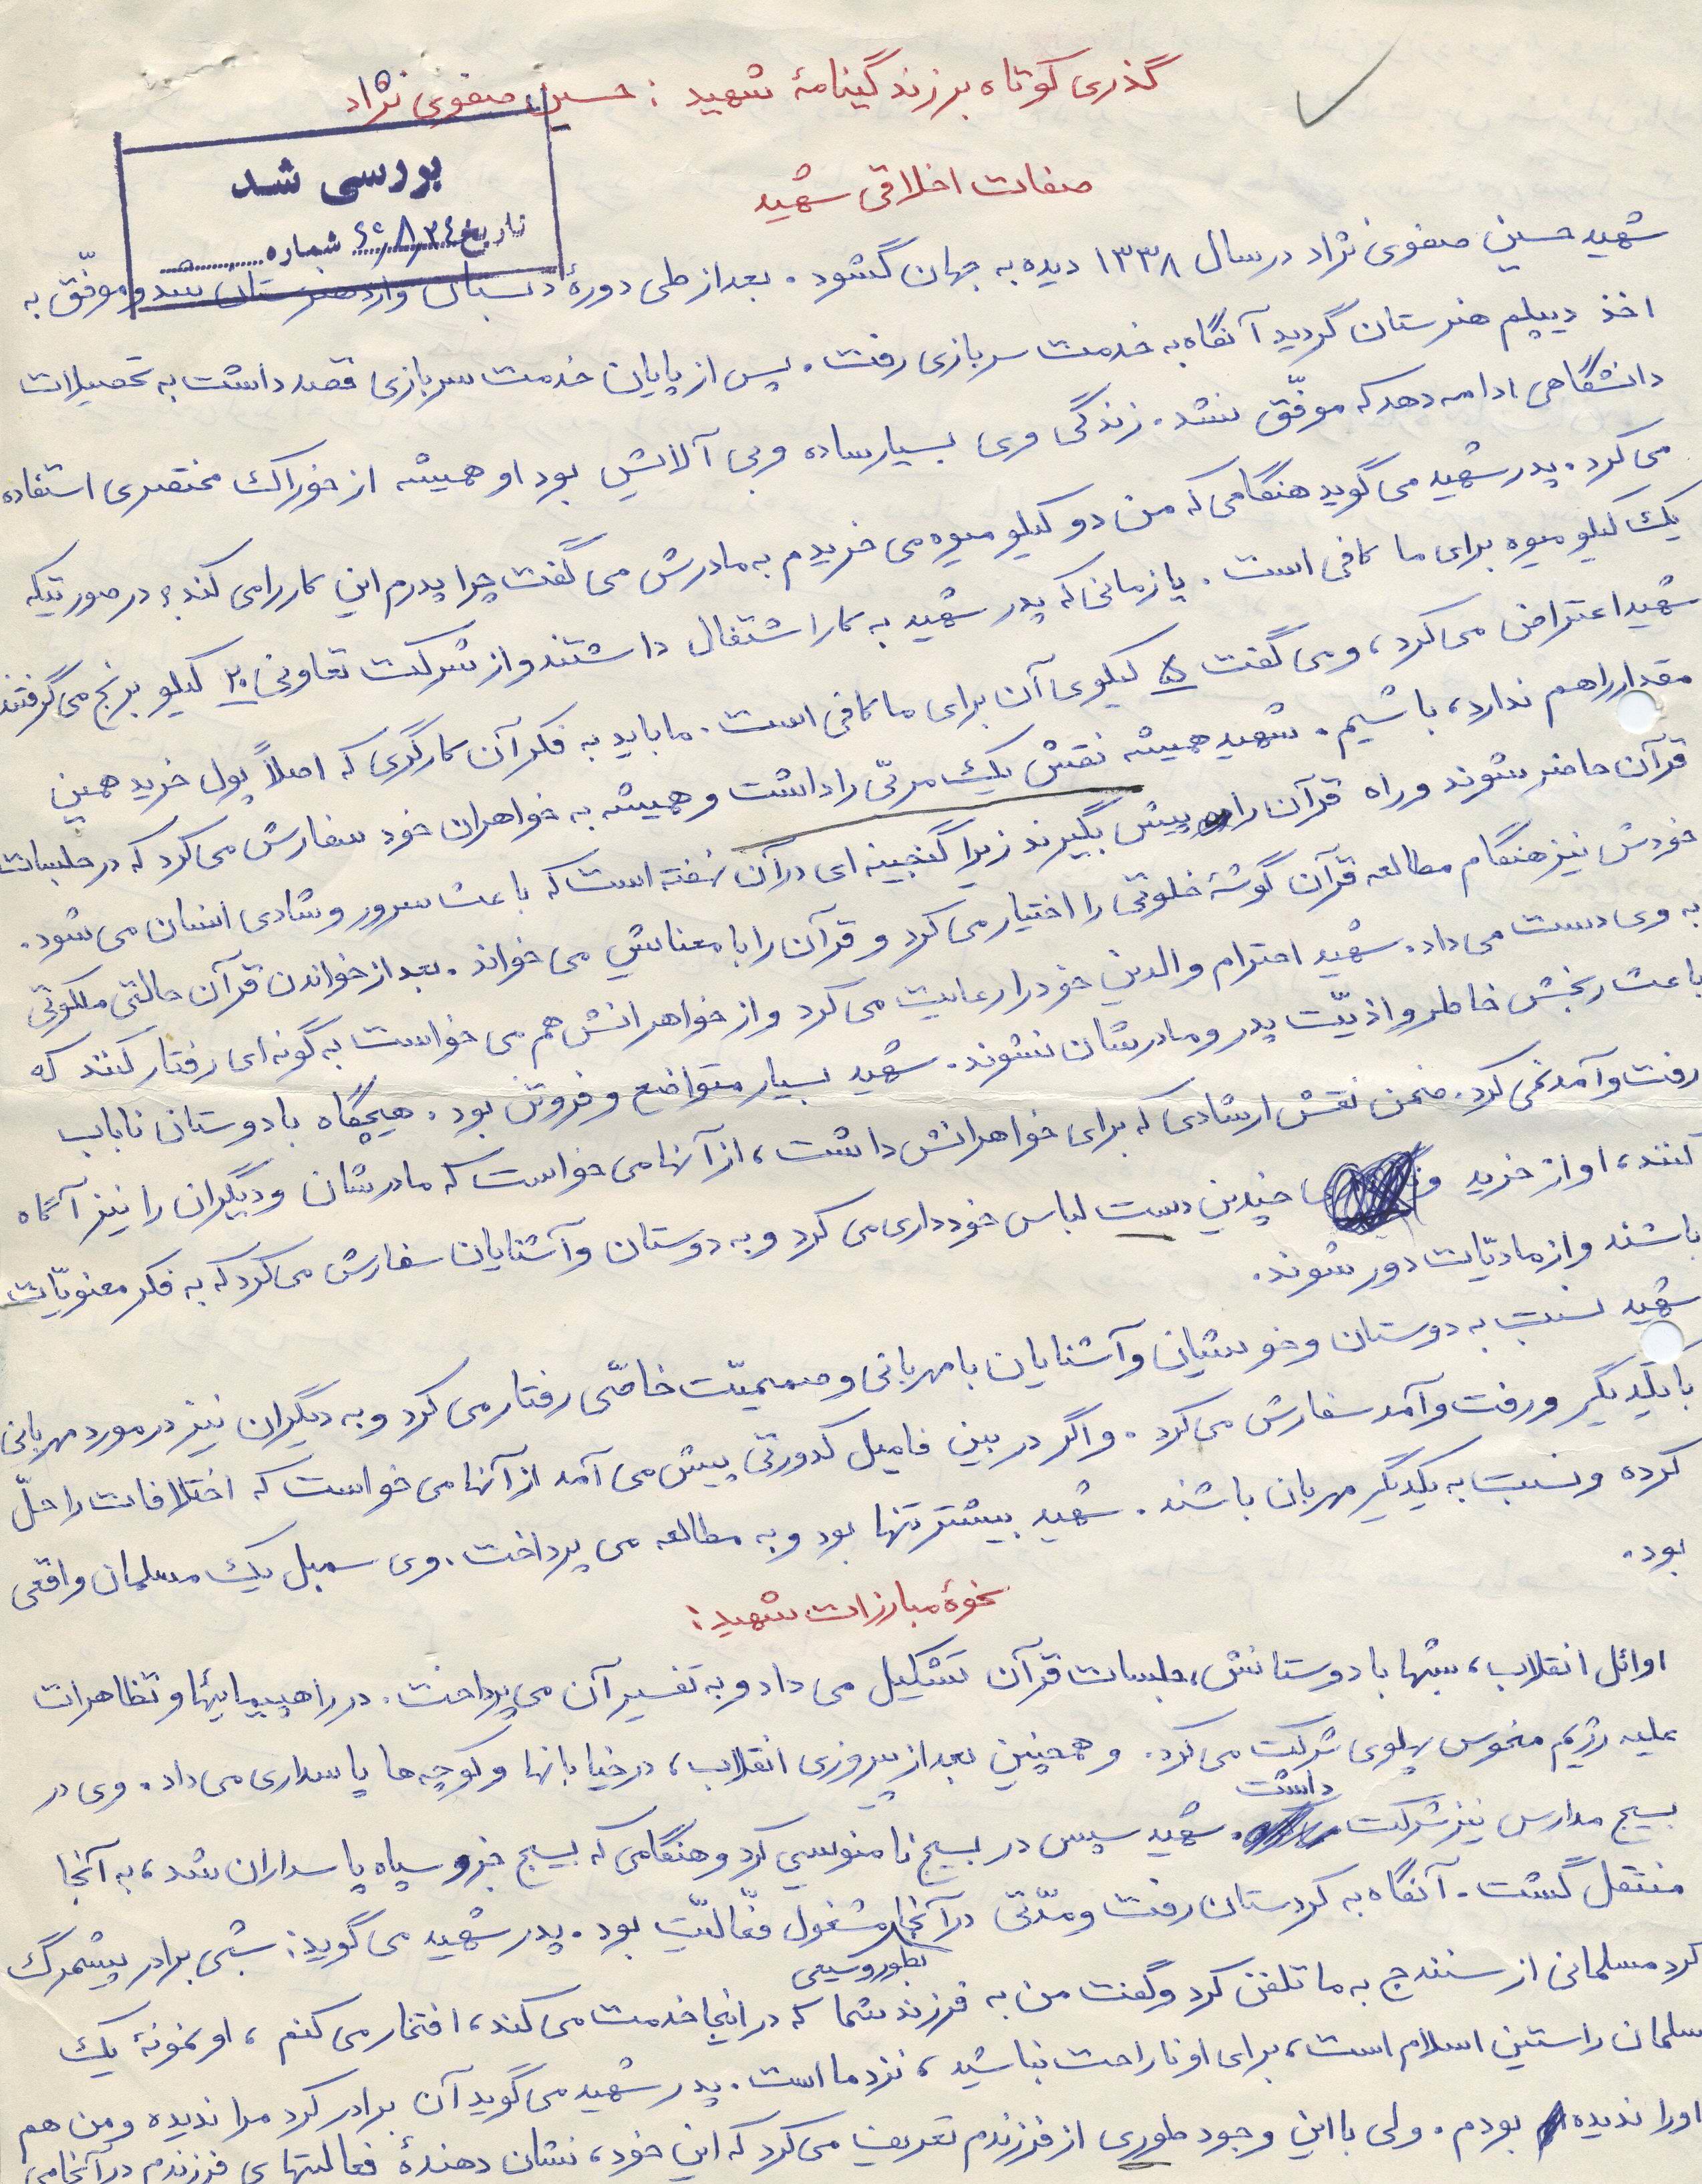 گذری کوتاه بر زندگینامهٔ شهید : حسین صفوی نژاد
بررسی شد
تاریخ ۶۵/۸/۲۴ شماره
صفات اخلاقی شهید
شهید حسین صفوی نژاد در سال ۱۳۳۸ دیده به جهان گشود . بعد از طی دورهٔ دبستان وارد هنرستان شد و موفّق به
اخذ دیپلم هنرستان گردید آنگاه به خدمت سربازی رفت . پس از پایان خدمت سربازی قصد داشت به تحصیلات
دانشگاهی ادامه دهد که موفّق نشد . زندگی وی بسیار ساده و بی آلایش بود او همیشه از خوراک مختصری استفاده
می کرد . پدر شهید می گوید هنگامی که من دو کیلو میوه می خریدم به مادرش می گفت چرا پدرم این کار را می کند ؟ در صورتیکه
یک کیلو میوه برای ما کافی است . یا زمانی که پدر شهید به کار اشتغال داشتند و از شرکت تعاونی ۲۰ کیلو برنج می گرفتند
شهید اعتراض می کرد ، و می گفت ۵ کیلوی آن برای ما کافی است . ما باید به فکر آن کارگری که اصلاً پول خرید همین
مقدار را هم ندارد ، باشیم . شهید همیشه نقش یک مربّی را داشت و همیشه به خواهران خود سفارش می کرد که در جلسات
قرآن حاضر شوند و راه قرآن را پیش بگیرند زیرا گنجینه ای در آن نهفته است که باعث سرور و شادی انسان می شود .
خودش نیز هنگام مطالعه قرآن گوشهٔ خلوتی را اختیار می کرد و قرآن را با معنایش می خواند . بعد از خواندن قرآن حالتی ملکوتی
به وی دست می داد . شهید احترام والدین خود را رعایت می کرد و از خواهرانش هم می خواست به گونه ای رفتار کنند که
باعث رنجش خاطر و اذیّت پدر و مادرشان نشوند . شهید بسیار متواضع و فروتن بود . هیچگاه با دوستان ناباب
رفت و آمد نمی کرد . ضمن نقش ارشادی که برای خواهرانش داشت ، از آنها می خواست که مادرشان و دیگران را نیز آگاه
کنند ، او از خرید چندین دست لباس خودداری می کرد و به دوستان و آشنایان سفارش می کرد که به فکر معنویّات
باشند و از مادیّات دور شوند .
شهید نسبت به دوستان و خویشان و آشنایان با مهربانی و صمیمیّت خاصّی رفتار می کرد و به دیگران نیز در مورد مهربانی
با یکدیگر و رفت و آمد سفارش می کرد . و اگر در بین فامیل کدورتی پیش می آمد از آنها می خواست که اختلافات را حلّ
کرده و نسبت به یکدیگر مهربان باشند . شهید بیشتر تنها بود و به مطالعه می پرداخت . وی سمبل یک مسلمان واقعی
بود .
نحوهٔ مبارزات شهید :
اوائل انقلاب ، شبها با دوستانش ، جلسات قرآن تشکیل می داد و به تفسیر آن می پرداخت . در راهپیمایئها و تظاهرات
علیه رژیم منحوس پهلوی شرکت می کرد . و همچنین بعد از پیروزی انقلاب ، در خیابانها و کوچه ها پاسداری می داد . وی در
بسیج مدارس نیز شرکت داشت . شهید سپس در بسیج نامنویسی کرد و هنگامی که بسیج جزو سپاه پاسداران شد ، به آنجا
منتقل گشت . آنگاه به کردستان رفت و مدّتی در آنجا بطور وسیعی مشغول فعّالیّت بود . پدر شهید می گوید : شبی برادر پیشمرگ
کرد مسلمانی از سنندج به ما تلفن کرد و گفت من به فرزند شما که در اینجا خدمت می کند ، افتخار می کنم ، او نمونهٔ یک
مسلمان راستین اسلام است ، برای او ناراحت نباشید ، نزد ما است . پدر شهید می گوید آن برادر کرد مرا ندیده و من هم
او را ندیده بودم . ولی با این وجود طوری از فرزندم تعریف می کرد که این خود ، نشان دهندهٔ فعالیتهای فرزندم در آنجا می